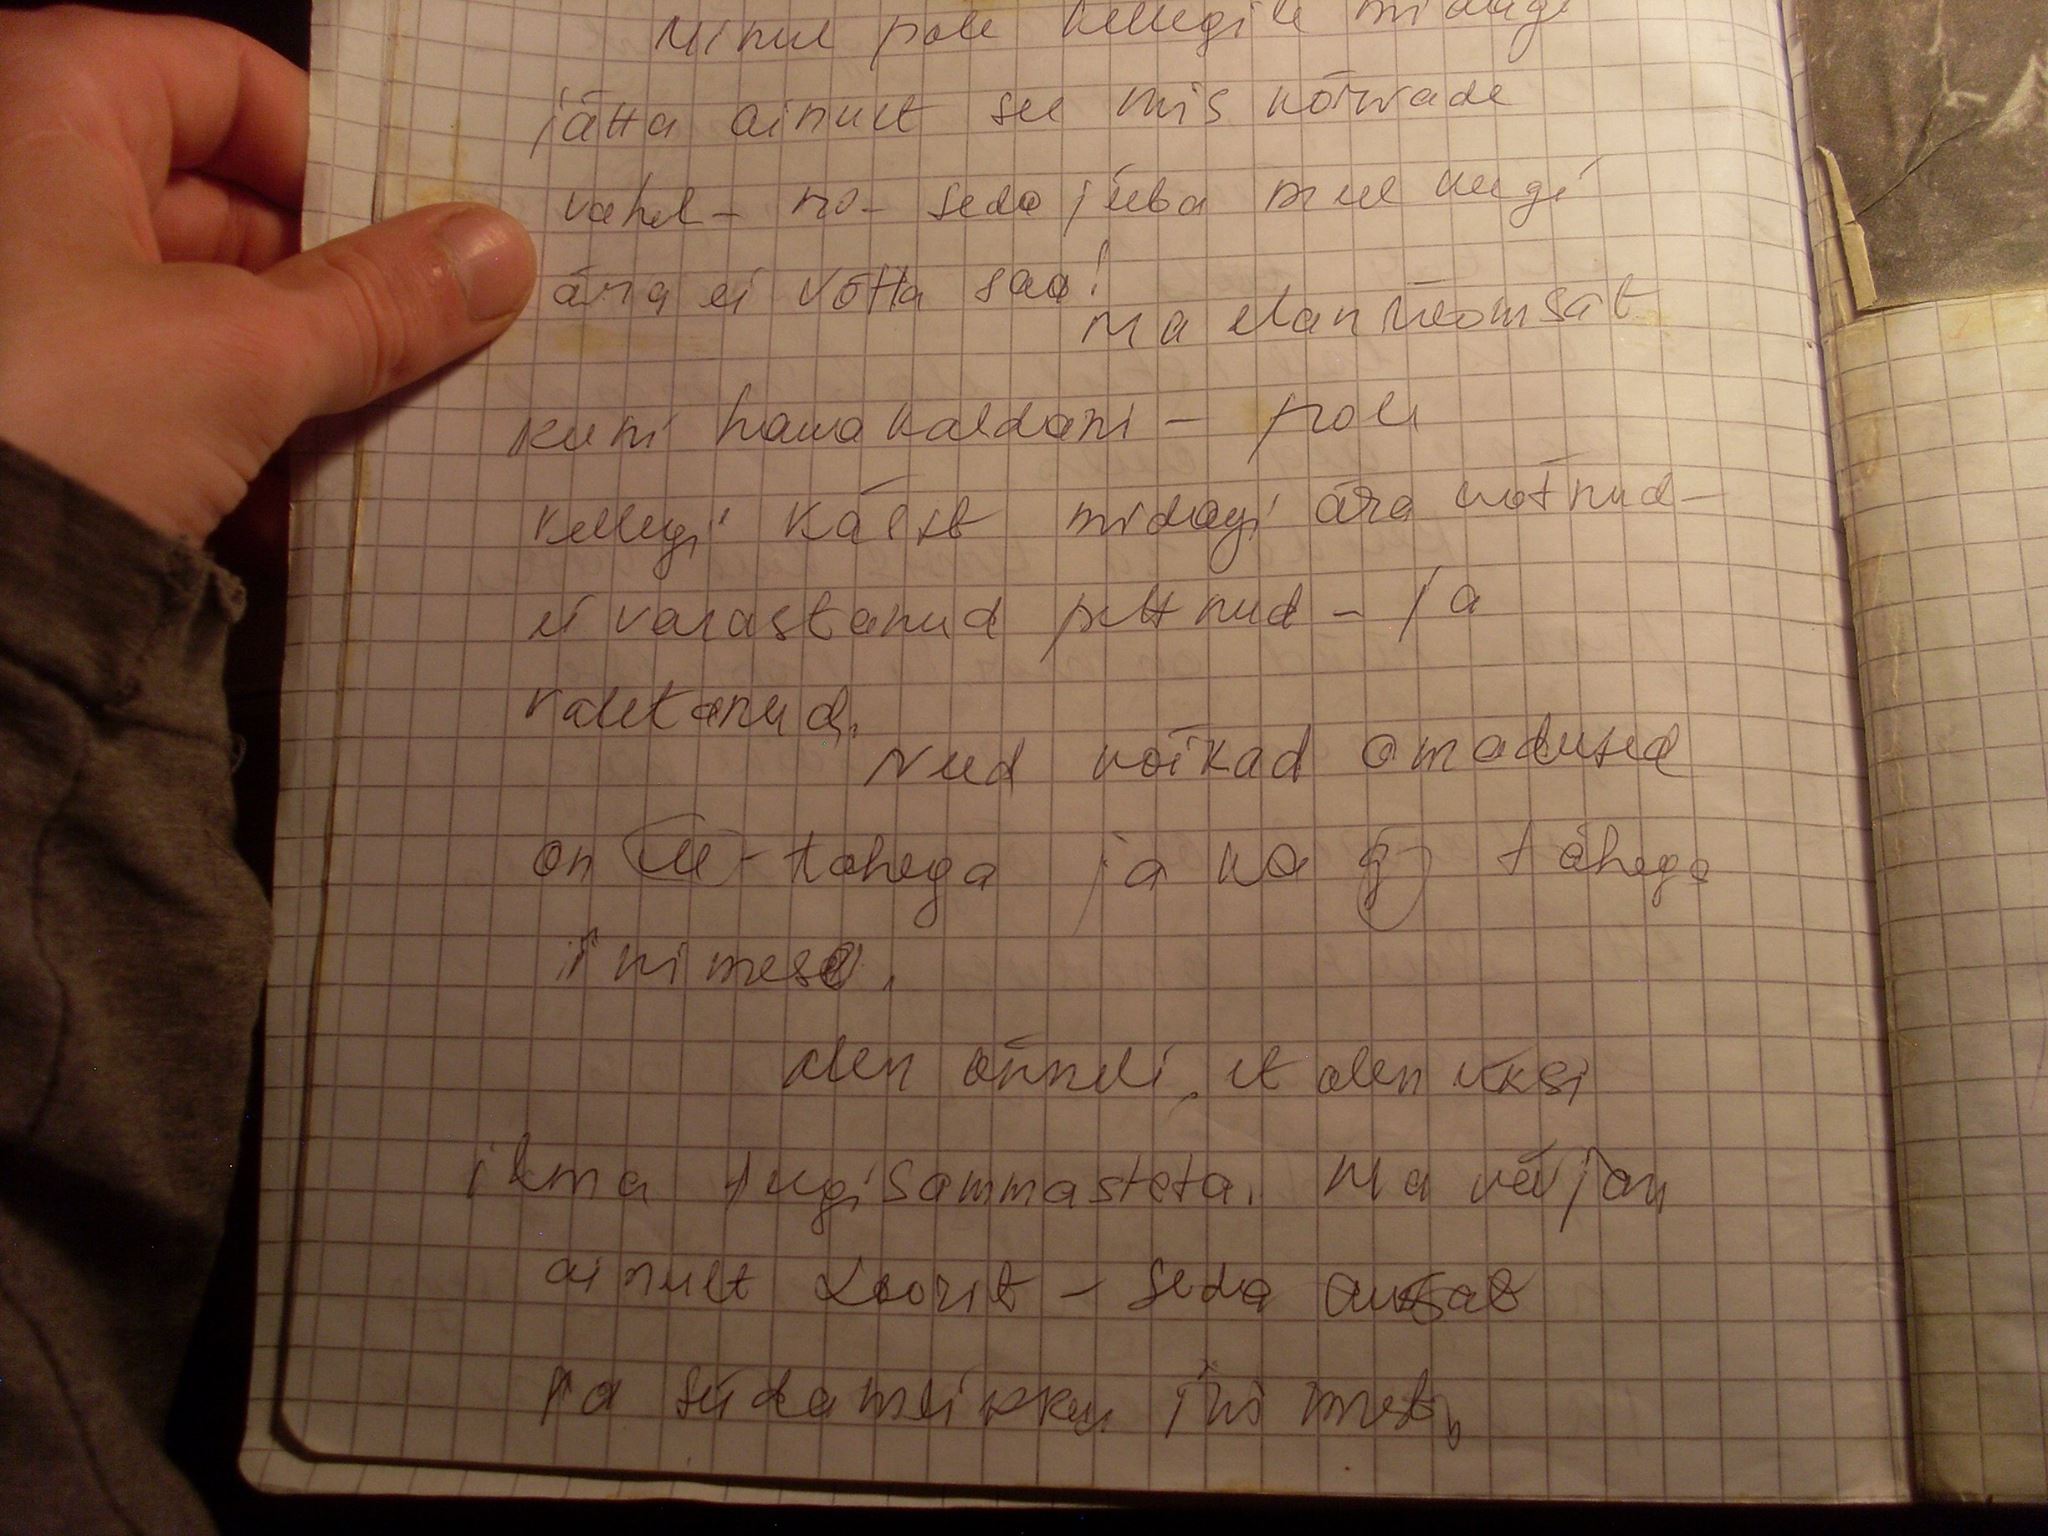 Minul pole kellegile midagi
jätta ainult see mis kõrvade
vahel - no - seda juba mul keegi
ära ei võtta saa!
Ma elan
kuni hauakaldani - pole
kellegi käest midagi ära võtnud -
ei varastanud petnud - ja
valetanud.
Need kõikad omadused
on - tähega ja ka tähega
inimese.
olen õnneli, et olen üksi
ilma tugisammasteta. Ma
ainult Loorit - seda ausat
ja südamlikku inimest,